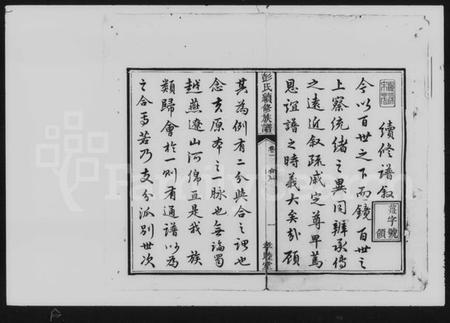 續修譜叙
今以百世之下而鏡百世之
上察統緒之異同辨承傳
之遠近叙疏戚定尊卑篤
恩誼譜之時義大矣哉顧
彭氏續修族譜
卷一
一
敦睦堂
其為例有二分與合之謂也
念支原本之一脉也無論蜀
越燕遼山河綿亘是我族
類歸會於一則有通譜以為
之合焉若乃支分派別世次
字號
領